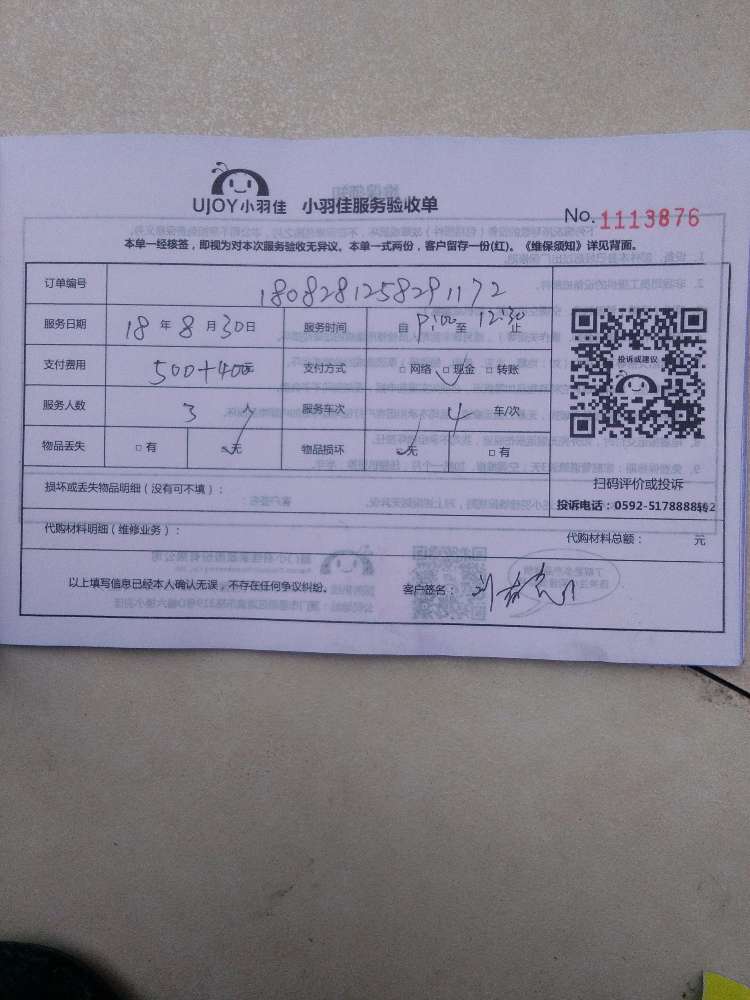 UJOY小羽佳 小羽佳服务验收单
No. 1113876
本单一经核签，即视为对本次服务验收无异议。本单一式两份，客户留存一份(红)。《维保须知》详见背面。
订单编号 1808281258291172
服务日期 18 年 8 月 30 日 服务时间 自 9:00 至 12:30 止
支付费用 500+400元 支付方式 □ 网络 □ 现金 □ 转账
服务人数 3 人 服务车次 4 车/次
物品丢失 □ 有 □ 无 物品损坏 □ 无 □ 有
投诉或建议
扫码评价或投诉
损坏或丢失物品明细（没有可不填）：
投诉电话：0592-5178888转
代购材料明细（维修业务）： 代购材料总额： 元
以上填写信息已经本人确认无误，不存在任何争议纠纷。 客户签名：